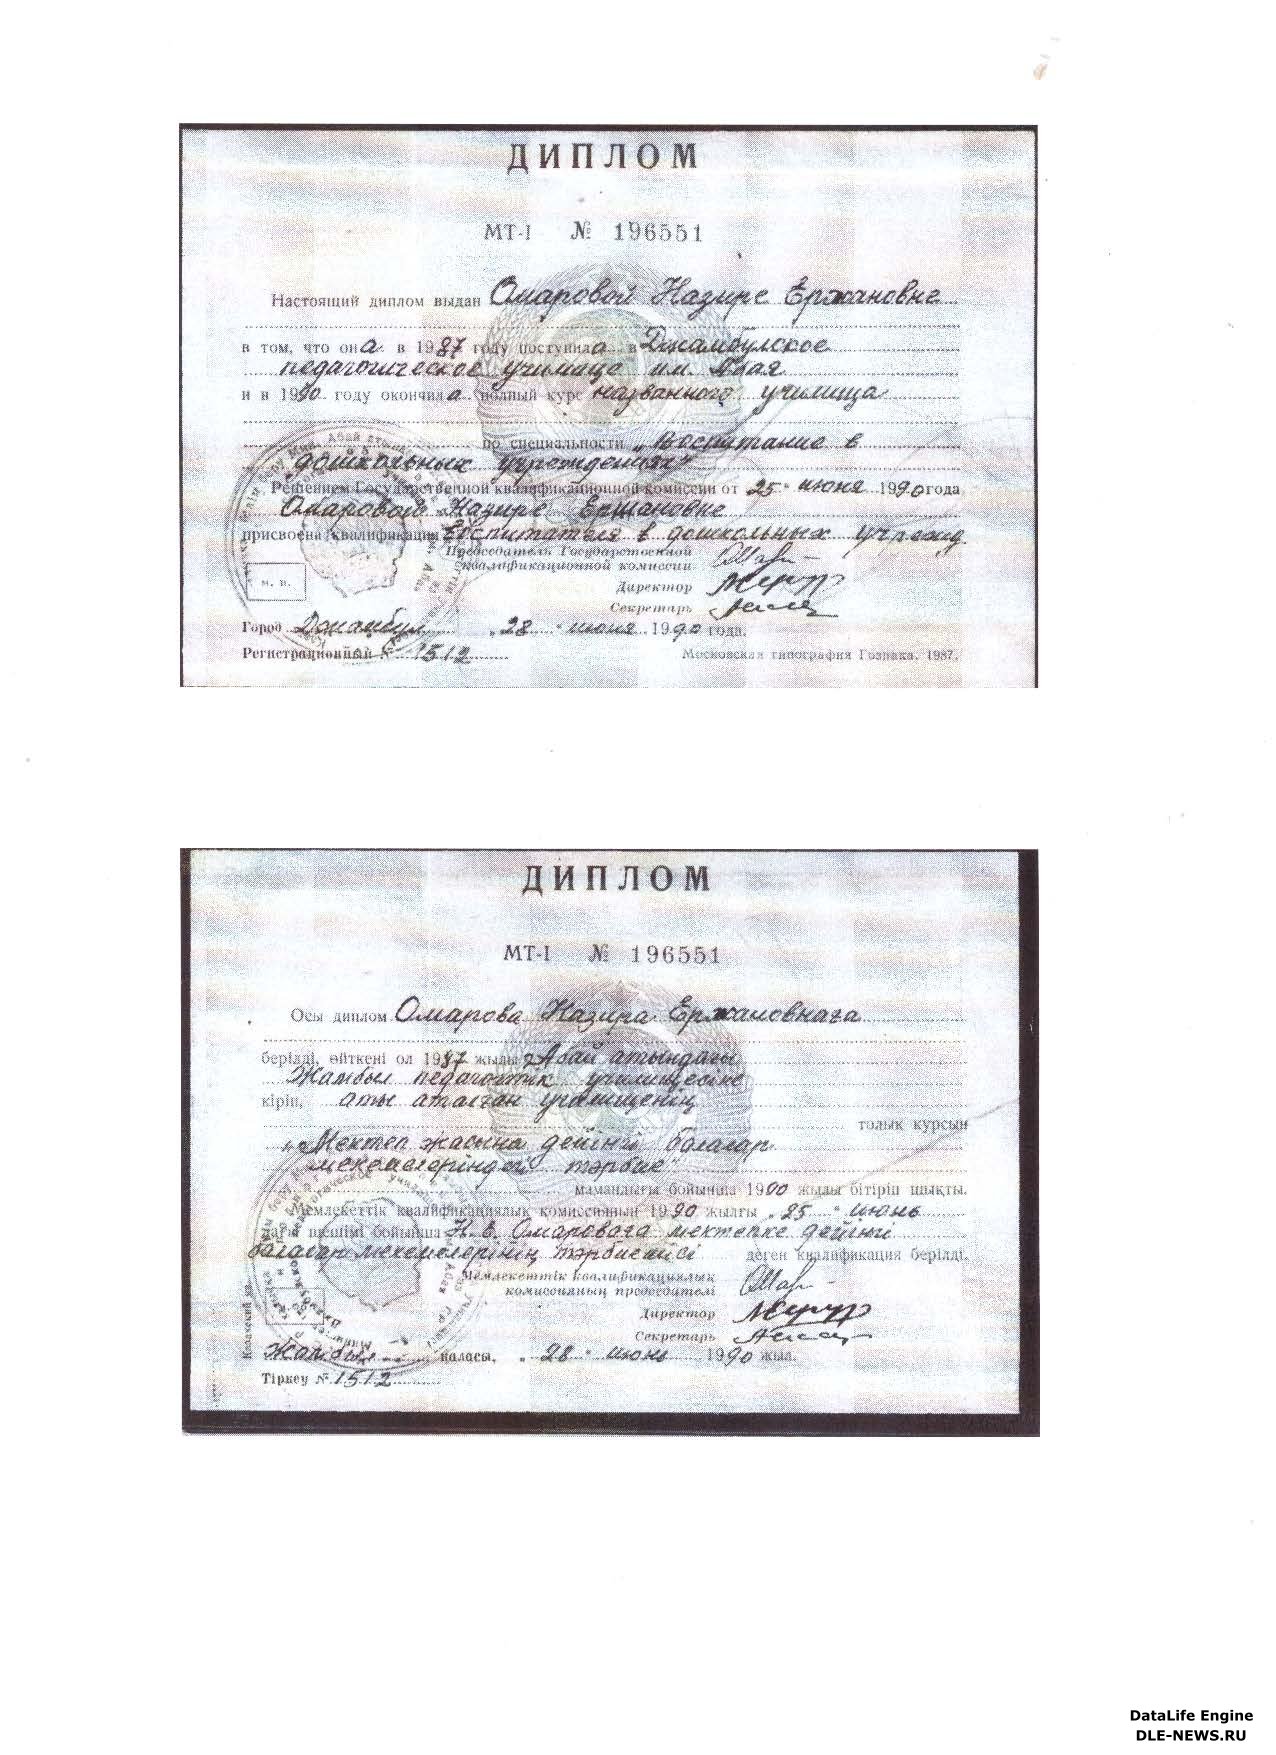 ДИПЛОМ
МТ-I № 196551
Настоящий диплом выдан Омаровой Назире Ержановне
в том, что она в 1987 году поступила в Джамбулское
педагогическое училище им. Абая
и в 1990 году окончила полный курс названного училища
по специальности „Воспитание в
дошкольных учреждениях"
Решением Государственной квалификационной комиссии от „25" июня 1990 года
Омаровой Назире Ержановне
присвоена квалификация Воспитателя в дошкольных учрежд.
Председатель Государственной
квалификационной комиссии
Директор
Секретарь
м. п.
Город Джамбул „28" июня 1990 года.
Регистрационный № 1512
Московская типография Гознака. 1987.
ДИПЛОМ
МТ-I № 196551
Осы диплом Омарова Назира Ержановнаға
берілді, өйткені ол 1987 жылы Абай атындағы
Жамбыл педагогтик училищесіне
кіріп, аты аталған училищенің
толық курсын
„Мектеп жасына дейінгі балалар
мекемелеріндегі тәрбие"
мамандығы бойынша 1990 жылы бітіріп шықты.
Мемлекеттік квалификациялық комиссияның 1990 жылғы „25" июнь
дағы шешімі бойынша Н. Е. Омароваға мектепке дейінгі
балалар мекемелерінің тәрбиешісі деген квалификация берілді.
Мемлекеттік квалификациялық
комиссияның председателі
Директор
Секретарь
Жамбыл қаласы, „28" июнь 1990 жыл.
Тіркеу № 1512
DataLife Engine
DLE-NEWS.RU